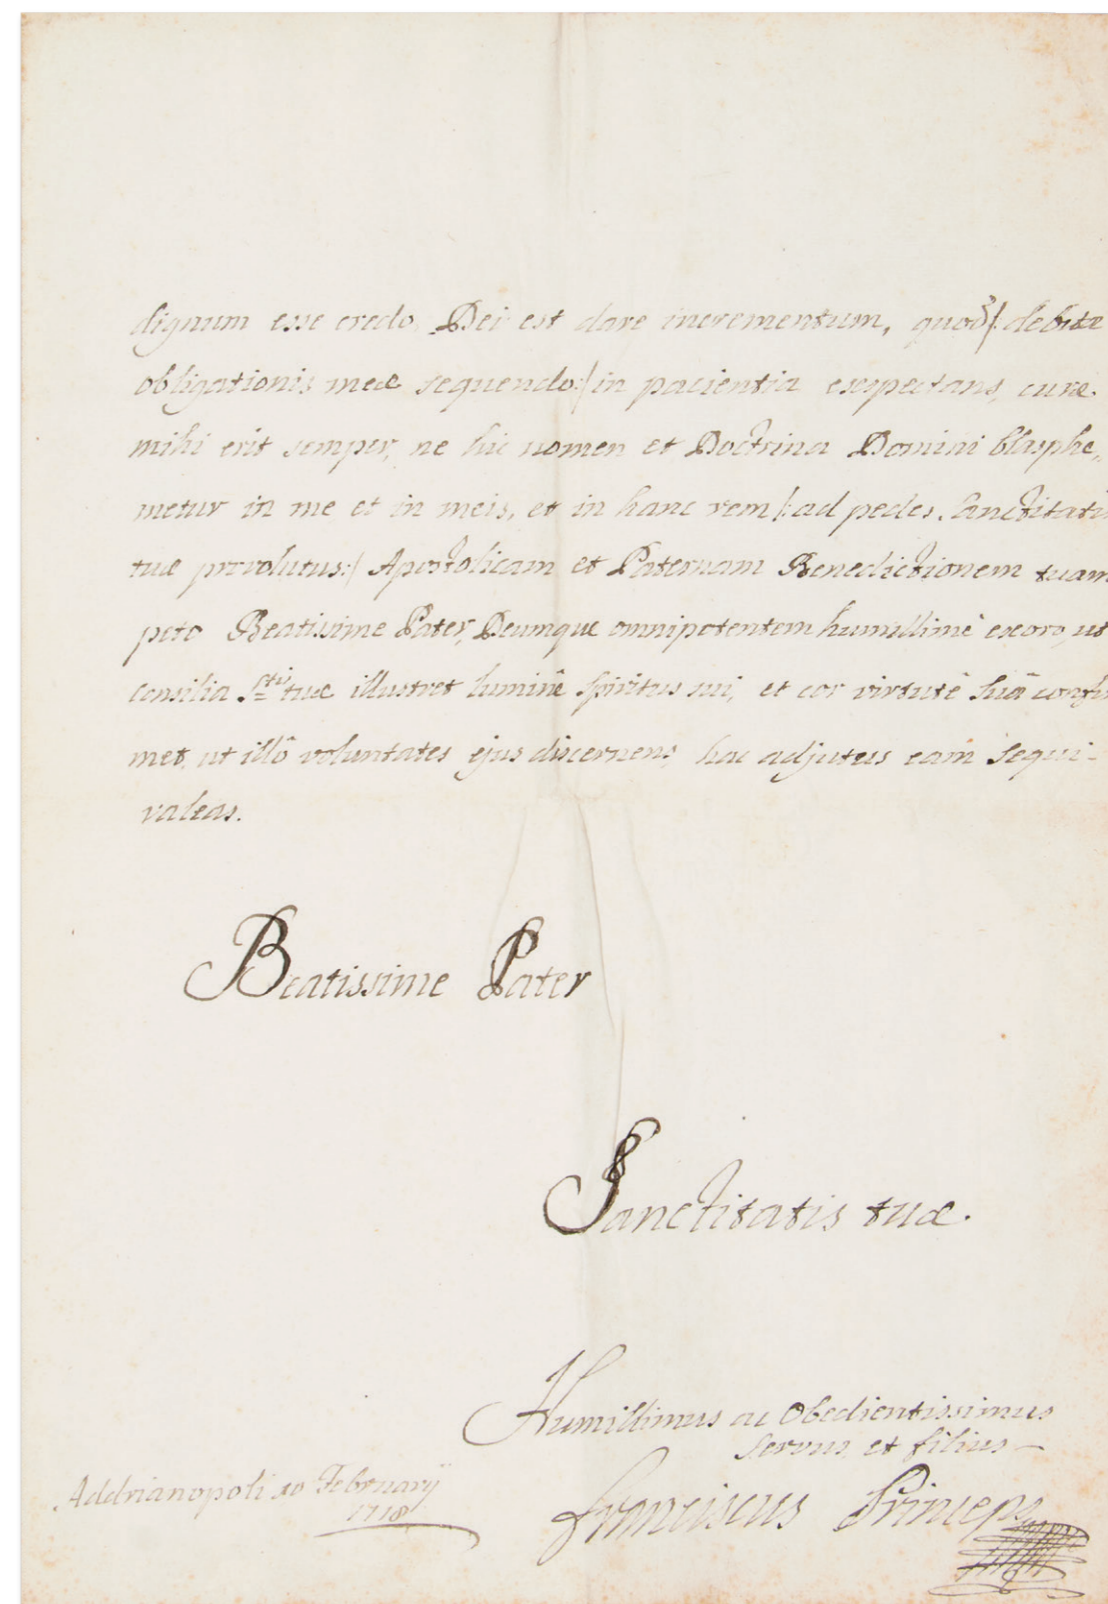 dignum esse credo. Dei est dare incrementum, quod /: debitæ
obligationis meæ sequendo :/ in pacientia exspectans, curæ
mihi erit semper, ne hic nomen et Doctrina Domini blasphe„
metur in me et in meis, et in hanc rem /: ad pedes Sanctitatis
tuæ provolutus :/ Apostolicam et Paternam Benedictionem tuam
peto Beatissime Pater, Deumque omnipotentem humillimè exoro, ut
consilia S.tis tuæ illustret luminê Spiritus sui, et cor virtutê Suâ confir
met, ut illô voluntates ejus discernens, hac adjutus eam sequi-
valeas.
Beatissime Pater
Sanctitatis tuæ.
Humillimus ac Obedientissimus
servus et filius
Addrianopoli 10 Februarÿ
1718
Franciscus Princeps